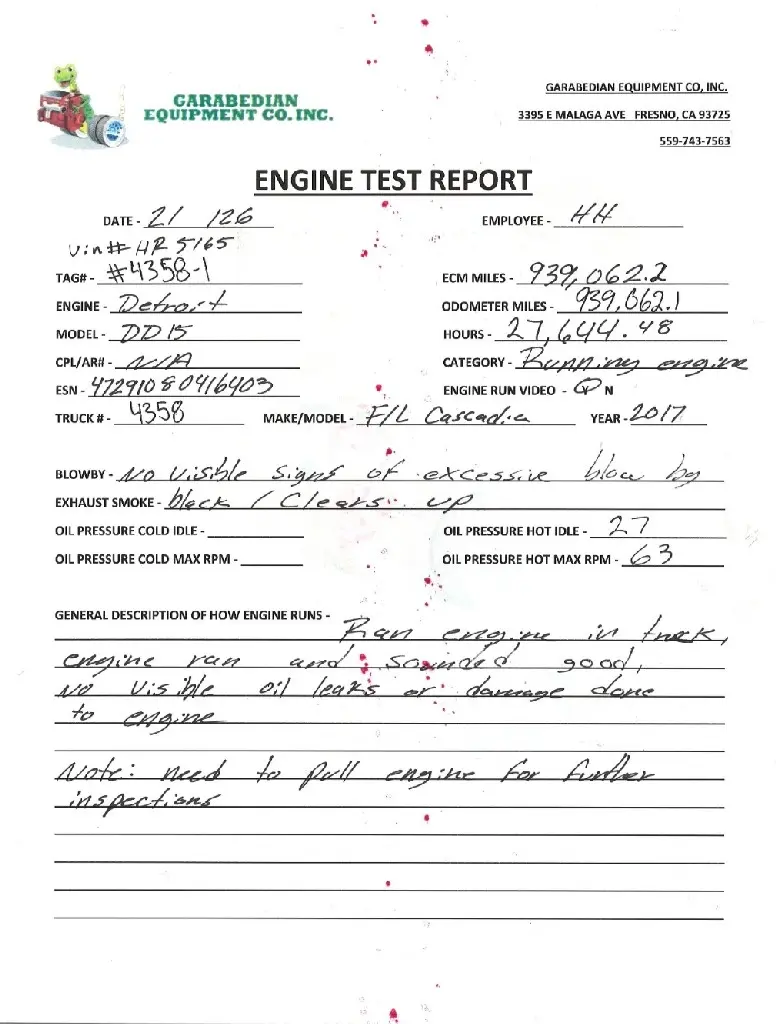 GARABEDIAN EQUIPMENT CO, INC.
GARABEDIAN
EQUIPMENT CO. INC.
3395 E MALAGA AVE FRESNO, CA 93725
559-743-7563
ENGINE TEST REPORT
DATE - 2/ /26 EMPLOYEE - HH
Vin# HR 5165
TAG# - #4358-1 ECM MILES - 939,062.2
ENGINE - Detroit ODOMETER MILES - 939,062.1
MODEL - DD15 HOURS - 27,644.48
CPL/AR# - N/A CATEGORY - Running engine
ESN - 472910S0416403 ENGINE RUN VIDEO - Y N
TRUCK # - 4358 MAKE/MODEL - F/L Cascadia YEAR - 2017
BLOWBY - No visible signs of excessive blow by
EXHAUST SMOKE - black / Clears up
OIL PRESSURE COLD IDLE - OIL PRESSURE HOT IDLE - 27
OIL PRESSURE COLD MAX RPM - OIL PRESSURE HOT MAX RPM - 63
GENERAL DESCRIPTION OF HOW ENGINE RUNS -
Ran engine in truck,
engine ran and sounded good,
No visible oil leaks or damage done
to engine
Note: need to pull engine for further
inspections